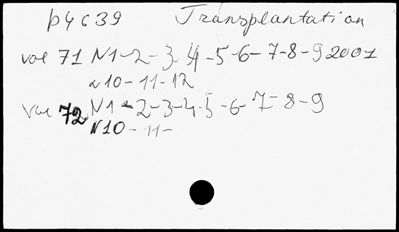 p4c39 Transplantation
vol 71 N1-2-3-4-5-6-7-8-9 2001
N10-11-12
vol 72 N1-2-3-4-5-6-7-8-9
N10-11-